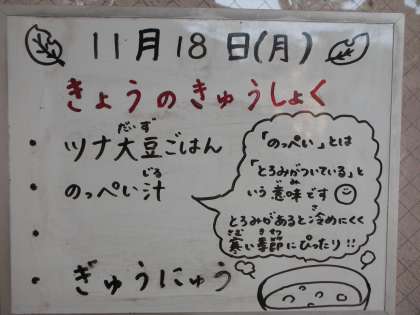 11月18日(月)
きょうのきゅうしょく
・ツナ大豆ごはん
だいず
・のっぺい汁
じる
・
・ぎゅうにゅう
「のっぺい」とは
「とろみがついている」と
いう意味です
いみ
とろみがあると冷めにくく
さ
寒い季節にピッタリ!!
さむ きせつ